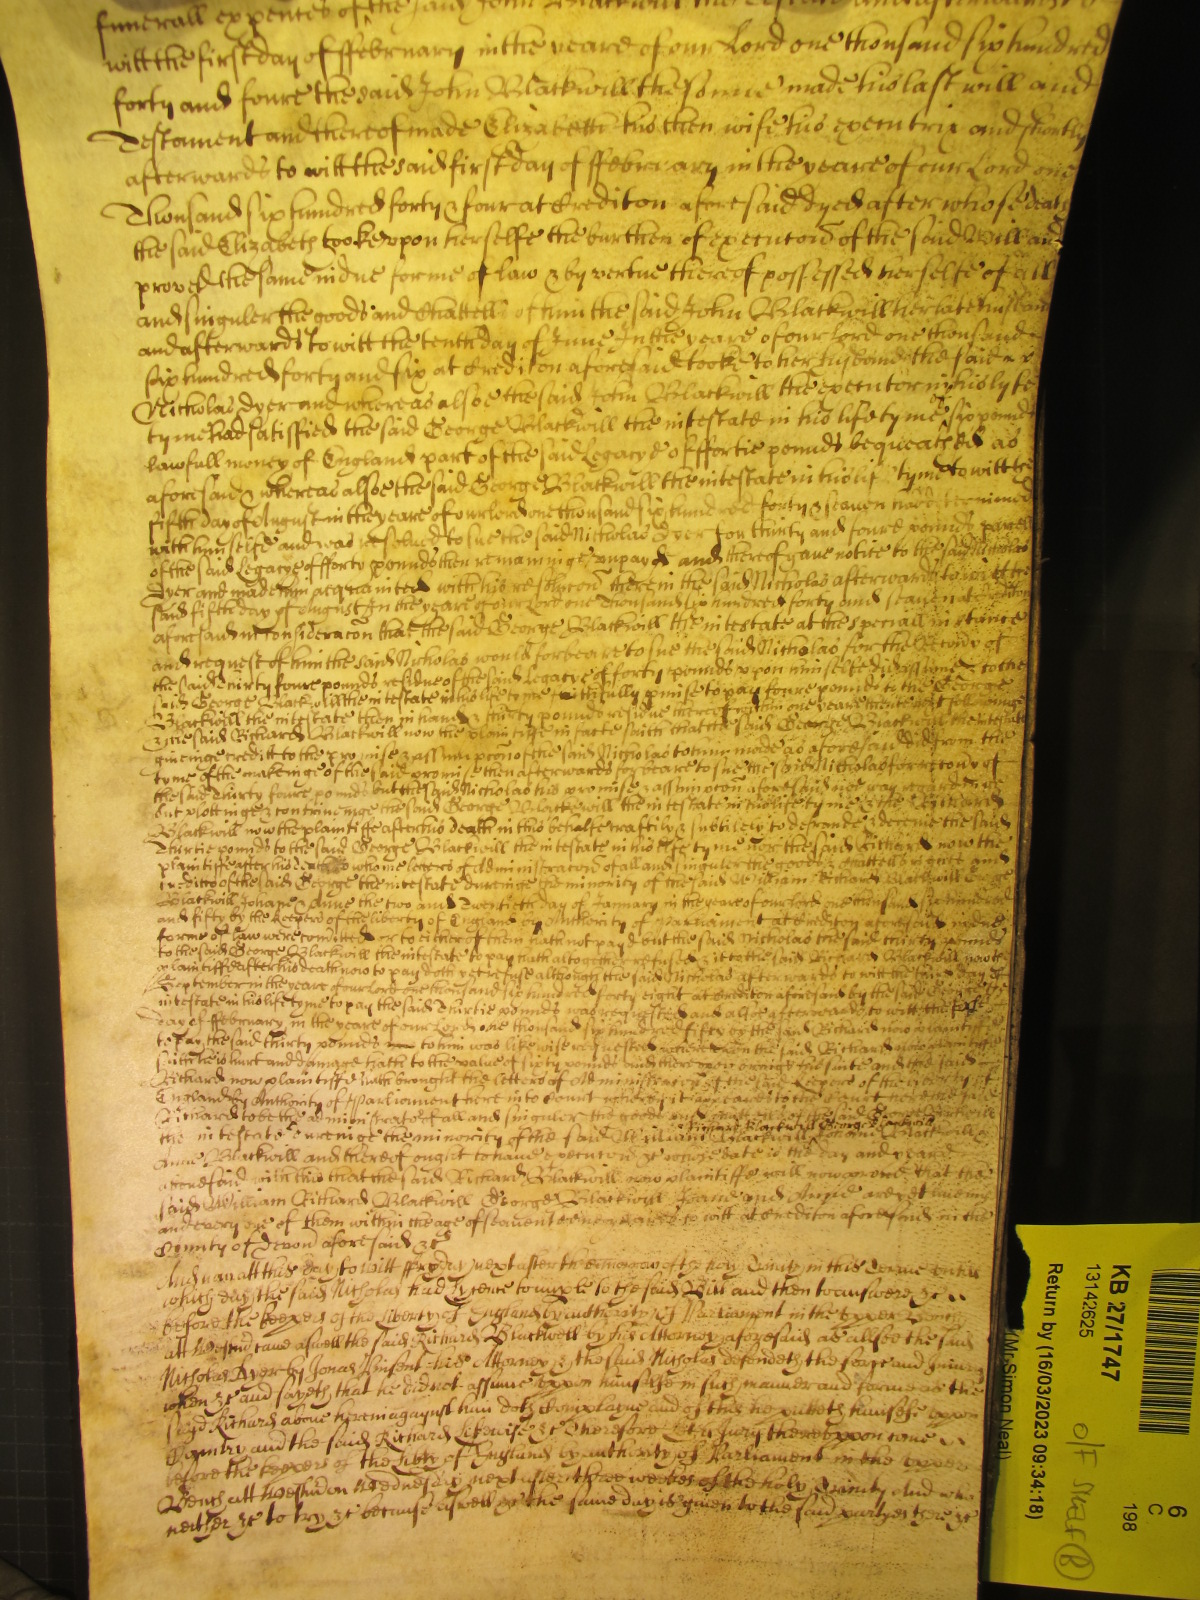 funerall expences of the said John Blackwill the
witt the first day of ffebruary in the yeare of our Lord one thousand six hundred
forty and foure the said John Blackwill the sonne made his last will and
Testament and thereof made Elizabeth his then wife his executrix and shortly
afterwards to witt the said first day of ffebruary in the yeare of our Lord one
Thousand six hundred forty & four at Crediton aforesaid dyed after whose death
the said Elizabeth tooke upon herselfe the burthen of execucon of the said Will and
proved the same in due forme of law & by vertue thereof possessed herselfe of all
and singuler the goods and Chattells of him the said John Blackwill her late husband
and afterwards to witt the tenth day of June In the yeare of our Lord one thousand
six hundred forty and six at Crediton aforesaid tooke to her husband the said
Nicholas Dyer and whereas alsoe the said John Blackwill the executor in his lyfe
tyme had satisfied the said George Blackwill the intestate in his life tyme six pounds
lawfull money of England part of the said Legacye of ffortie pounds bequeathed as
aforesaid & whereas alsoe the said George Blackwill the intestate in his life tyme to witt the
fifth day of August in the yeare of our Lord one thousand six hundred forty & seaven had determined
with himselfe and was resolved to sue the said Nicholas Dyer for thirty and foure pounds parcell
of the said Legacye of fforty pounds then remaininge unpayd and thereof gave notice to the said Nicholas
Dyer and made him acquainted with his resolucon therein the said Nicholas afterwards to witt the
said fifth day of August In the yeare of our Lord one Thousand six hundred forty and seaven at Crediton
aforesaid in consideracon that the said George Blackwill the intestate at the speciall instance
and request of him the said Nicholas would forbeare to sue the said Nicholas for the recovery of
the said thirty foure pounds residue of the said Legacye of forty pounds upon himselfe did assume & to the
said George Blackwill the intestate in his life tyme faithfully promise to pay foure pounds to the George
Blackwill the intestate then in hand & thirty pounds residue thereof within one yeare then next followinge
& the said Richard Blackwill now the plaintiffe in facte saith that the said George Blackwill the intestate
givinge creditt to the promise & assumpcon of the said Nicholas to him made as aforesaid did from the
tyme of the makeinge of the said promise then afterwards forbeare to sue the said Nicholas for recovery of
the said thirty foure pounds but the said Nicholas his promise & assumpcon aforesaid not regardinge
but plottinge & contrivinge the said George Blackwill the intestate in his life tyme & the said Richard
Blackwill now the plaintiffe after his death in this behalfe craftily & subtilely to defraude & deceive the said
Thirtie pounds to the said George Blackwill the intestate in his life tyme nor the said Richard now the
plaintiffe after his death to whome letters of Administracon of all and singuler the goods & chattells rights and
creditts of the said George the intestate duringe the minority of the said William Richard Blackwill George
Blackwill Johane & Anne the two and Twentieth day of January in the yeare of our Lord one thousand six hundred
and fifty by the Keepers of the liberty of England by Authority of Parliament at Crediton aforesaid in due
forme of law were comitted or to either of them hath not payd but the said Nicholas the said thirty pounds
to the said George Blackwill the intestate to pay hath altogether refused & it to the said Richard Blackwill now
plaintiffe after his death now to pay doth yet refuse although the said Nicholas afterwards to witt the third day of
September in the yeare of our Lord One thousand six hundred forty eight at Crediton aforesaid by the said George the
intestate in his life tyme to pay the said thirtie pounds was requested and alsoe afterwards to witt the first
day of ffebruary in the yeare of our Lord one thousand six hundred fifty by the said Richard now plaintiffe
to pay the said thirty pounds to him was likewise requested whereupon the said Richard now plaintiffe
saith he is hurt and damage hath to the value of sixty pounds and thereupon bringes the suite and the said
Richard now plaintiffe hath brought the letters of Administracon of the said Keepers of the liberty of
England by Authority of Parliament here into Court
Richard to be the administrator of all and singuler the goods and chattells of the said George Blackwill
the intestate dureinge the minority of the said William Richard Blackwill George Blackwill
Anne Blackwill and thereof ought to have execucon & whose date is the day and yeare
aforesaid with this that the said Richard Blackwill now plaintiffe will now prove that the
said William Richard Blackwill George Blackwill Joane and Anne are yet liveing
and every one of them within the age of seaventeene yeares to witt at Crediton aforesaid in the
County of Devon aforesaid &c
And now att this day to witt ffryday next after the morrow of the holy Trinity in this Terme untill
which day the said Nicholas had lycence to imple to the said Bill and then to answere &c
before the keepers of the liberty of England by authority of Parliament in the upper Bench
att Westm came aswell the said Richard Blackwell by his Attorney aforesaid as allsoe the said
Nicholas Dyer by Jonas his Attorney & the said Nicholas defendeth the force and Iniury
when &c and sayeth that he did not assume uppon himselfe in such manner and forme as the
said Richard above thereof against him doth Complayne and of this he putteth himselfe uppon
Country and the said Richard likewise &c Therefore lett a Jury thereuppon come
before the keepers of the libty of England by authority of Parliament in the upper
Bench att Westm on Wednesday next after three weekes of the holy Trinity And who
neither &c to try &c because aswell &c the same day is given to the said partyes there &c
KB 27/1747
13142625
Return by (16/03/2023 09:34:18)
(Mr Simon Neal)
6
C
198
O/F